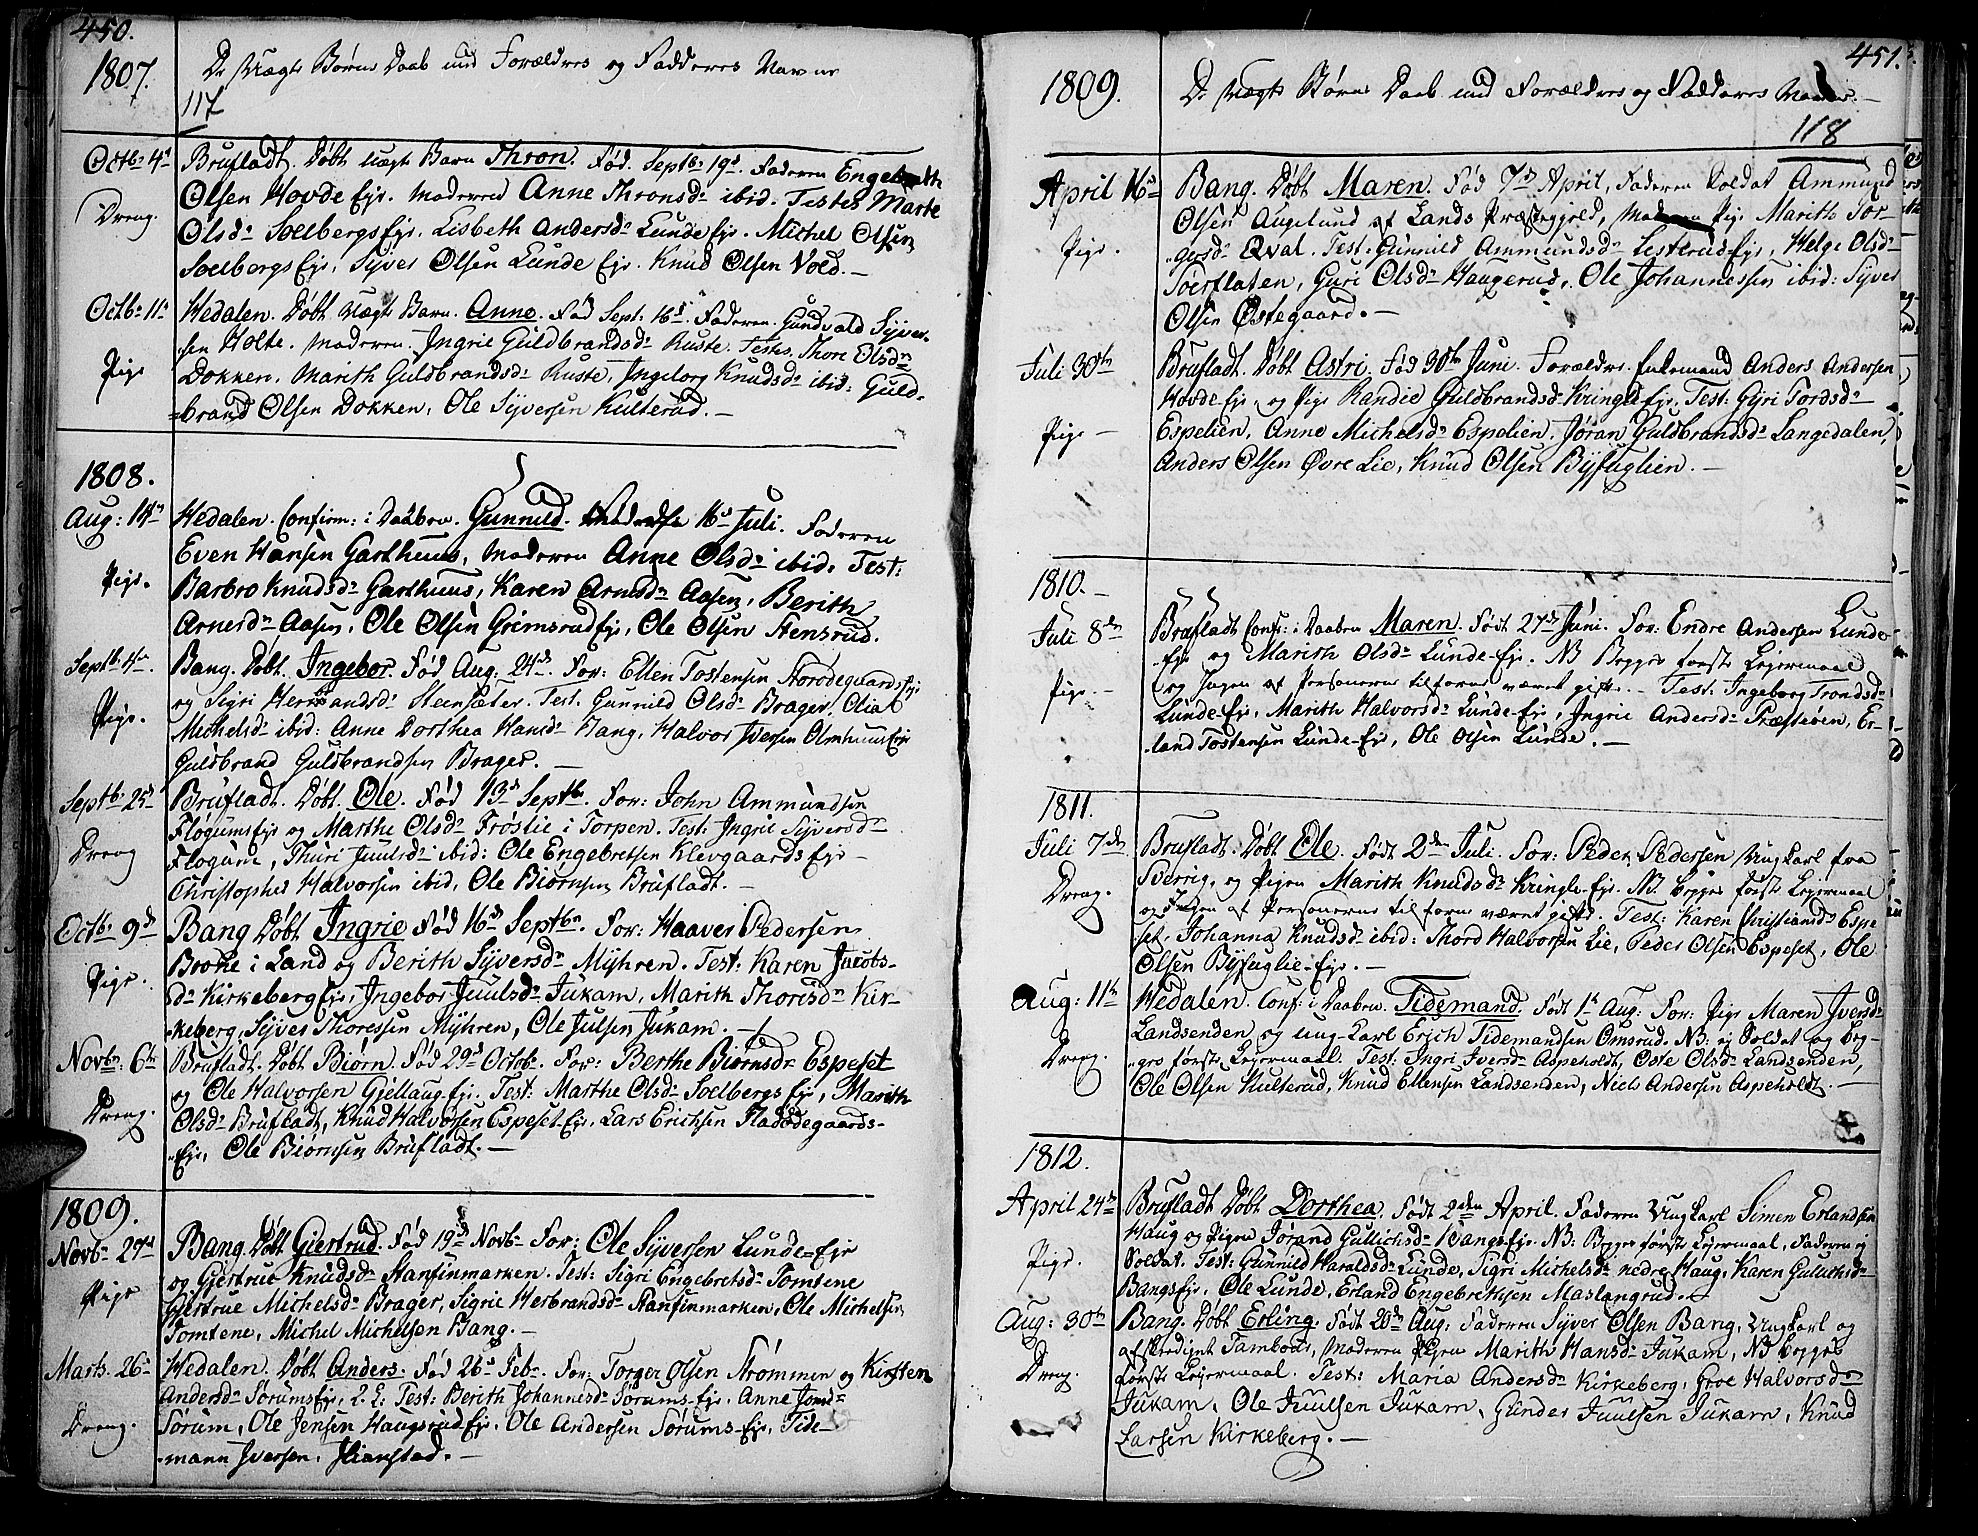 450.
1807.
De Uægte Børns Daab med Forældres og Fadderes Navne
117
Octbr 4d Brufladt. Døbt uægte Barn Thron. Fød. Septbr 19d. Faderen Engebreth
Olsen Hovde Eje. Moderen Anne Thronsdr ibid. Testes Marte
Dreng. Olsdr SoelbergsEje. Lisbeth Andersdr LundeEje. Michel Olsen
SoelbergsEje, Syver Olsen Lunde Eje. Knud Olsen Vold.—
Octbr 11d Hedalen. Døbt uægte Barn. Anne. Fød Sept: 16d. Faderen. Gundvald Syver-
sen Holte. Moderen. Ingrie Guldbrandsdr Ruste. Testes. Thore Olsdr
Pige Dokken. Marith Guldbrandsdr Ruste, Ingeborg Knudsdr ibid: Guld-
-brand Olsen Dokken, Ole Syversen Kulterud.—
1808.
Aug: 14de Hedalen. Confirm: i Daaben. Gunnild. 16d Juli. Faderen
Even Hansen Garthuus, Moderen Anne Olsdr ibid. Test:
Pige. Barbro Knudsdr Garthuus, Karen Arnesdr Aasen, Berith
Arnesdr Aasen, Ole Olsen GrimsrudEje, Ole Olsen Stensrud.
Septbr 4de Bang. Døbt. Ingebor. Fød Aug: 24de. For: Ellen Tostensen StorødegaardsEje
og Sigri Herbrandsdr Steinsæter. Test. Gunnild Olsdr Brager, Olia
Pige. Michelsdr ibid: Anne Dorthea Hansdr Bang, Halvor Iversen OlmhuusEje
Guldbrand Guldbrandsen Brager.—
Septbr 25d Brufladt. Døbt. Ole. Fød 13d Septbr. For: John Ammundsen
FløgumsEje og Marthe Olsdr Frøslie i Torpen. Test: Ingrie Syversdr
Dreng Fløgum, Thuri Juulsdr ibid: Ole Engebretsen KlevgaardsEje—
Christopher Halvorsen ibid, Ole Biørnsen Brufladt.—
Octbr 9d Bang Døbt Ingrie Fød 16d Septbr. For: Haaver Pedersen
i Land og Berith Syversdr Myhren. Test: Karen Jacobs-
Pige. dr KirkebergEje, Ingebor Juulsdr Jukam, Marith Thoresdr Kir-
-keberg, Syver Thoresen Myhren, Ole Julsen Jukam.—
Novbr: 6te Brufladt. Døbt Biørn. Fød 29d Octob. For: Berthe Biørnsdr Espeset
og Ole Halvorsen Gjellaug-Eje. Test: Marthe Olsdr SoelbergsEje, Marith
Dreng. Olsdr Brufladt, Knud Halvorsen Espeset-Eje. Lars Erichsen Fladødegaards-
-Eje, Ole Biørnsen Brufladt.—
1809.
Novbr 27d Bang Døbt Giertrud. Fød 19d Novbr For: Ole Syversen Lunde-Eje
og Gjertrue Knudsdr Stansinmarken. Test: Sigri Engebretsdr Tomtene
Pige Gjertrue Michelsdr Brager, Sigrie Herbrandsdr Stansinmarken, Ole Michelsen
Tomtene, Michel Michelsen Bang.—
Marts. 26d Hedalen. Døbt Anders. Fød 26d Febr. For: Torger Olsen Strømmen og Kirsten
Andersdr SorumsEje, Test: Berith Johannesdr Sorums-Eje, Anne
Dreng. Sorum, Ole Jensen HaugsrudEje, Ole Andersen Sørums-Eje, Tide-
-mann Iversen.
451.
1809.
De Uægte Børns Daab med Forældres og Fadderes Navne.—
118
April 16d Bang. Døbt Maren. Fød 7de April, Faderen Soldat Ammund
Olsen Augelund af Lands Præstegjeld, Moderen Pige Marith Tor-
Pige. -gersdr Qval. Test: Gunnild Ammundsdr LesterudEje, Helge Olsdr
Soerflaten, Guri Olsdr Haugerud, Ole Johannessen ibid: Syver
Olsen Østegaard.—
Juli 30te Brufladt. Døbt Astri. Fød 30te Juni. Forældre. Enkemand Anders Andersen
Hovde Eje, og Pige Randie Guldbrandsdr Kringle-Eje. Test: Gyri Tordsdr
Pige— Espelien. Anne Michelsdr Espelien. Jøran Guldbrandsdr Langedalen,
Anders Olsen Øvre Lie, Knud Olsen Byfuglien.—
1810.—
Juli 8de Brufladt Conf: i Daaben Maren. Født 27de Juni. For: Endre Andersen Lunde
-Eje og Marith Olsdr Lunde-Eje. NB Begges første Leiermaal
Pige.— og Ingen af Personerne tilforn været gifte.— Test: Ingeborg Trondsdr
Lunde-Eje, Marith Halvorsdr Lunde-Eje, Ingrie Andersdr Præstøen, Er-
-land Tostensen Lunde-Eje, Ole Olsen Lunde.—
1811.
Juli 7de Brufladt. Døbt Ole. Født 2den Juli. For: Peder Pedersen Ungkarl fra
Dreng. Sverrig, og Pigen Marith Knudsdr Kringle-Eje. NB. begges første Leiermaal
og Ingen af Personerne tilforn været gifte. Test: Karen Christiansdr Espe-
set, Johanna Knudsdr ibid: Thord Halvorsen Lie, Peder Olsen Espeset, Ole
Olsen Byfuglie-Eje.—
Aug: 11te Hedalen. Conf: i Daaben. Tidemand. Født 1ste Aug: For: Pige Maren Iversdr
Landsenden og Ung-Karl Erich Tidemandsen Omsrud. NB: ej Soldat og beg-
Dreng. -ges første Leiermaal. Test: Ingri Iversdr Aspeholdt, Oste Olsdr Landsenden,
Ole Olsen Kulterud, Knud Ellensen Landsenden, Niels Andersen Aspeholdt.—
1812.
April 24de Brufladt Døbt Dorthea. Født 2den April. Faderen Ungkarl Simen Erlandsen
Haug og Pigen Jørand Gullichsdr Bangs-Eje. NB: Begges første Leiermaal, Faderen ej
Pige. Soldat. Test: Gunnild Haraldsdr Lunde, Sigri Michelsdr nedre Haug, Karen Gulichsdr
BangsEje, Ole Lunde, Erland Engebrethsen Maslangrud.
Aug: 30te Bang. Døbt Erling. Født 20de Aug: Faderen Syver Olsen Bang, Ungkarl og
afskediget Tambour, Moderen Pigen Marith Hansdr Jukam, NB begges
Dreng. første Leiermaal. Test: Maria Andersdr Kirkeberg, Groe Halvorsdr
Jukam, Ole Juulsen Jukam, Gunder Juulsen Jukam, Knud
Larsen Kirkeberg.—